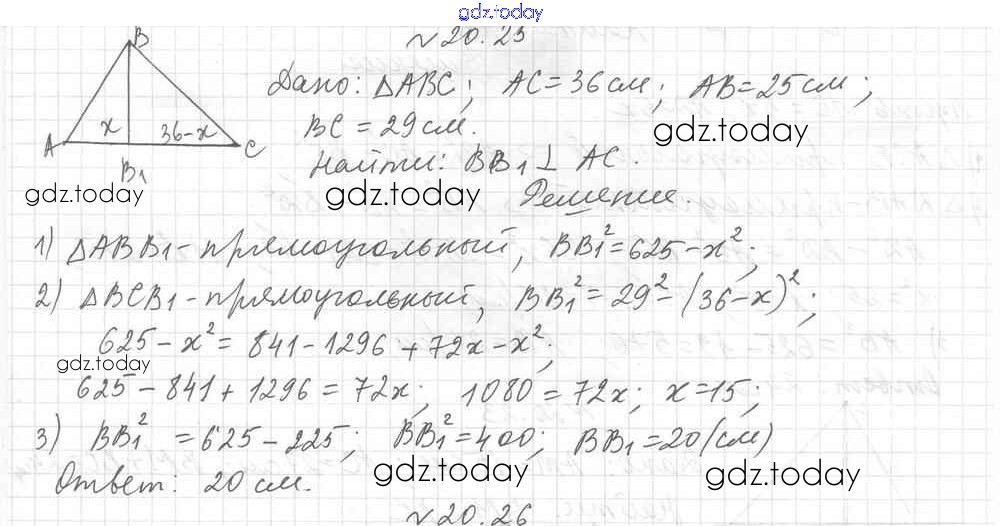 gdz.today
№20.25
B
Дано: ΔABC; AC=36см; AB=25см;
x 36-x
A C
BC = 29см.
gdz.today
B1
Найти: BB1 ⊥ AC.
gdz.today gdz.today
Решение.
1) ΔABB1-прямоугольный, BB1²=625-x²;
2) ΔBCB1-прямоугольный, BB1²=29²-(36-x)²;
625-x²= 841-1296+72x-x²;
gdz.today
625-841+1296=72x; 1080=72x; x=15;
3) BB1² =625-225; BB1²=400; BB1=20(см)
gdz.today gdz.today
Ответ: 20см.
№20.26